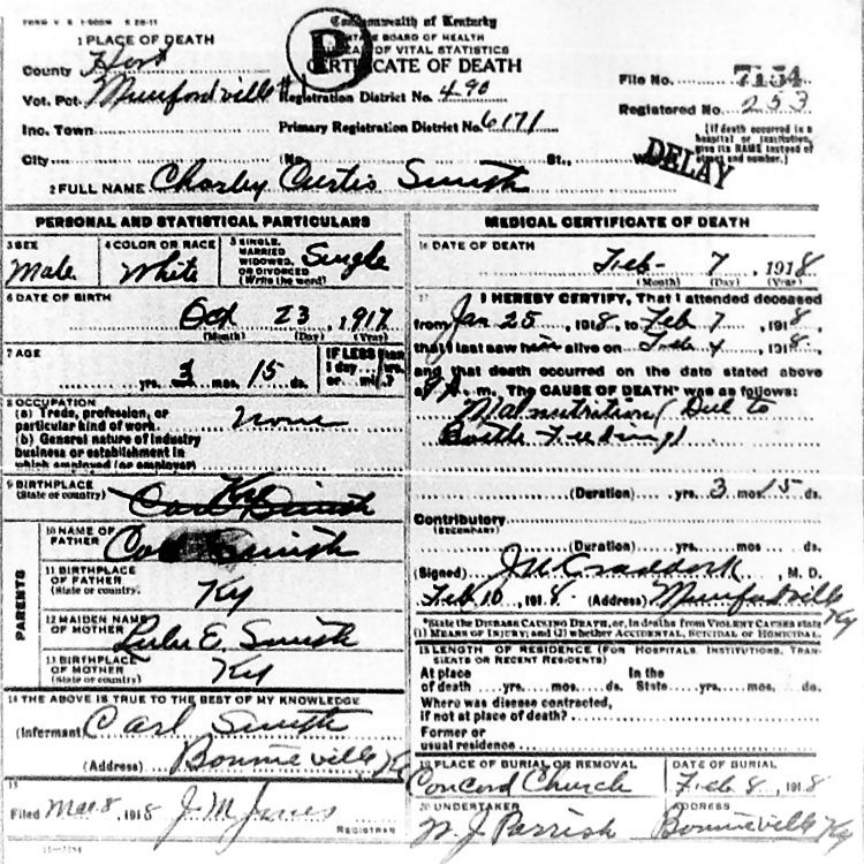 FORM V. S. 1-500M 8-28-11
Commonwealth of Kentucky
STATE BOARD OF HEALTH
BUREAU OF VITAL STATISTICS
CERTIFICATE OF DEATH
P
1 PLACE OF DEATH
County Hart
Vot. Pct. Munfordville #1 Registration District No. 490
File No. 7154
Registered No. 253
Inc. Town Primary Registration District No. 6171
[If death occurred in a hospital or institution, give its NAME instead of street and number.]
City (No. St., Ward)
DELAY
2 FULL NAME Charley Curtis Smith
PERSONAL AND STATISTICAL PARTICULARS
3 SEX Male
4 COLOR OR RACE White
5 SINGLE, MARRIED WIDOWED, OR DIVORCED (Write the word) Single
6 DATE OF BIRTH
Oct 23, 1917
(Month) (Day) (Year)
7 AGE
yrs. 3 mos. 15 ds.
IF LESS than 1 day hrs. or min.?
8 OCCUPATION
(a) Trade, profession, or particular kind of work. none
(b) General nature of industry business or establishment in which employed (or employer)
9 BIRTHPLACE (State or country) Ky Carl Smith
PARENTS
10 NAME OF FATHER Carl Smith
11 BIRTHPLACE OF FATHER (State or country) Ky
12 MAIDEN NAME OF MOTHER Lulu E. Smith
13 BIRTHPLACE OF MOTHER (State or country) Ky
14 THE ABOVE IS TRUE TO THE BEST OF MY KNOWLEDGE
(Informant) Carl Smith
(Address) Bonnieville Ky
15
Filed Mar 8, 1918 J. M. Jones
REGISTRAR
MEDICAL CERTIFICATE OF DEATH
16 DATE OF DEATH
Feb- 7, 1918
(Month) (Day) (Year)
17 I HEREBY CERTIFY, That I attended deceased
from Jan 25, 1918, to Feb 7, 1918,
that I last saw him alive on Feb 4, 1918,
and that death occurred on the date stated above
at m. The CAUSE OF DEATH* was as follows:
Malnutrition (Due to
Bottle Feeding)
(Duration) yrs. 3 mos. 15 ds.
Contributory
(SECONDARY)
(Duration) yrs. mos. ds.
(Signed) J W Craddock, M. D.
Feb 10, 1918. (Address) Munfordville Ky
*State the DISEASE CAUSING DEATH, or, in deaths from VIOLENT CAUSES state
(1) MEANS OF INJURY; and (2) whether ACCIDENTAL, SUICIDAL or HOMICIDAL.
18 LENGTH OF RESIDENCE (FOR HOSPITALS, INSTITUTIONS, TRANSIENTS OR RECENT RESIDENTS)
At place of death yrs. mos. ds. In the State yrs. mos. ds.
Where was disease contracted,
if not at place of death?
Former or
usual residence
19 PLACE OF BURIAL OR REMOVAL
Concord Church
DATE OF BURIAL
Feb 8, 1918
20 UNDERTAKER
W. J. Parrish
ADDRESS
Bonnieville Ky